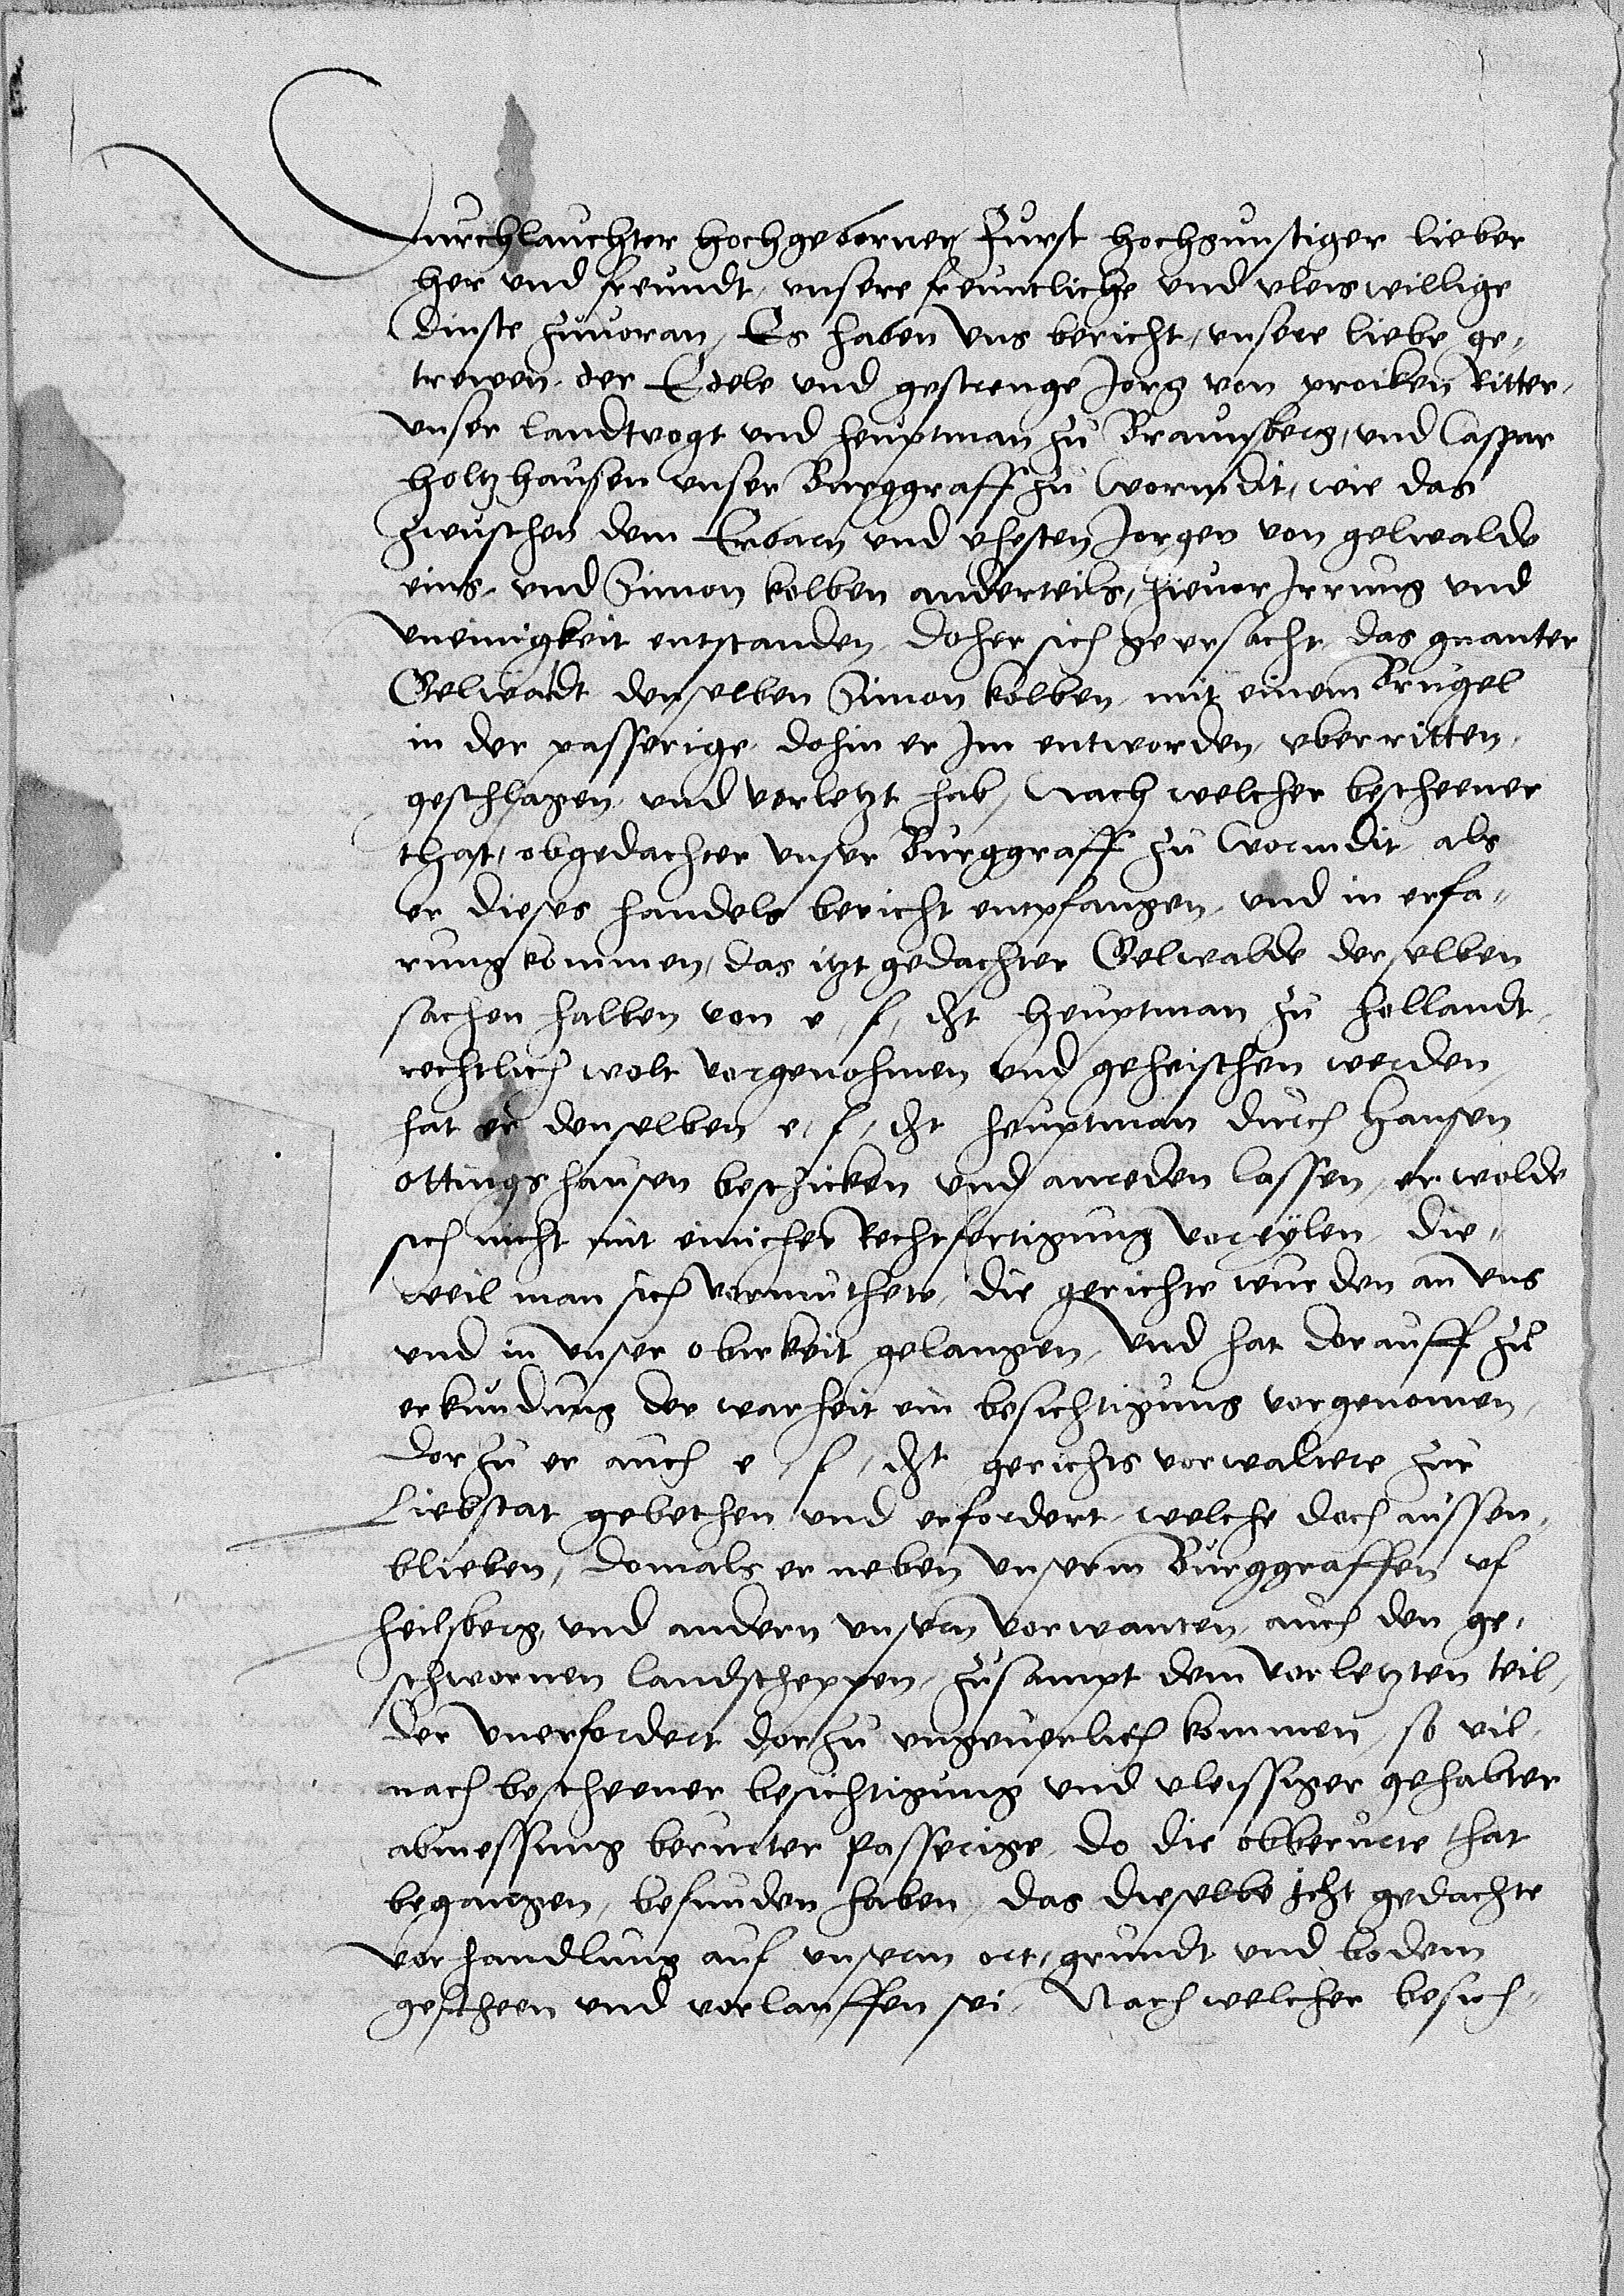 Durchlauchter hochgeborner Furst hochgunstiger lieber
her vnd freundt, vnsere freuntliche vnd vleis willige
dinste zuuoran, Es haben vns bericht, vnsere liebe ge,
trewen, der Edele vnd gestrenge Jorg von proiken Ritter,
vnser landtvogt vnd heuptman zu Braunsberg, vnd Caspar
holtzhausen vnser Burggraff zu wormdit, wie das
zwuschen dem Erbarn vnd vhesten Jorgen von gelwalde
eins, vnd Simon kolben anderteils, hieuor Irrung vnd
vneinigkeit entstanden, doher sich geursacht, das gnanter
Gelwaldt denselben Simon kolben, mit einem Brugel
in der passerige, dohin er Im entworden, vberritten,
geschlagen, vnd verletzt hab, Nach welcher bescheener
that, obgedachter vnser Burggraff zu wormdit, als
er dieses handels bericht empfangen, vnd in erfa,,
rung kommen, das itzt gedachter Gelwalde derselben
sachen halben von e, f, dt heuptman zu hollandt,
rechtlich wolt vorgenohmen vnd geheischen werden,
hat er denselben e, f, dt heuptman durch Hansen
ottingshausen beschicken vnd anreden lassen, er wolde
sich nicht mit einicher Rechtfertigung voreylen, die,,
weil man sich vermuthete, die gerichte wurden an vns
vnd in vnser obirkeit gelangen, vnd hat dorauff zu
erkundung der warheit ein besichtigung vorgenomen,
dorzu er auch e, f, dt gerichts vorwaltere zur
Liebstat gebethen vnd erfordert, welche doch aussen,
blieben, domals er neben vnserm Burggraffen vf
heilsberg, vnd andern vnsern vorwanten, auch den ge,
schwornen landscheppen, zusampt dem vorletzten teil,
der vnerfordert dorzu vngeuerlich kommen, so vil,
nach bescheener besichtigung vnd vleissiger gehabter
abmessung berurter passerige, do die obberurte that
begangen, befunden haben, das dieselbe itzt gedachte
vorhandlung auf vnserm ort, grundt vnd bodem
gescheen vnd vorlauffen sei, Nach welcher besich,,